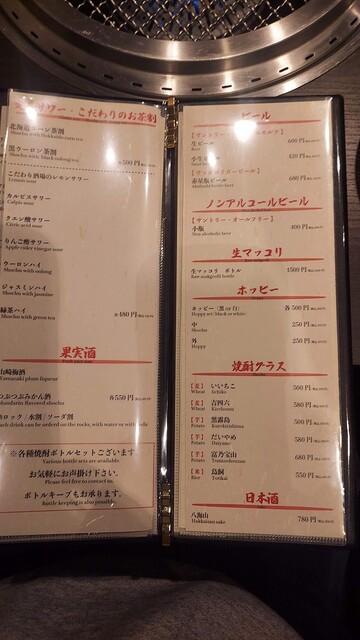 サワー・こだわりのお茶割
北海道コーン茶割
Shochu with Hokkaido corn tea
黒ウーロン茶割
Shochu with black oolong tea
各500円
こだわり酒場のレモンサワー
Lemon sour
カルピスサワー
Calpis sour
クエン酸サワー
Citric acid sour
りんご酢サワー
Apple cider vinegar sour
ウーロンハイ
Shochu with oolong
ジャスミンハイ
Shochu with jasmine
緑茶ハイ
Shochu with green tea
各480円
果実酒
山崎梅酒
Yamazaki plum liqueur
つぶつぶみかん酒
Mandarin flavored shochu
各550円
ロック / 水割 / ソーダ割
Each drink can be ordered on the rocks, with water or with
※各種焼酎ボトルセットございます
Various bottle sets are available.
お気軽にお声掛け下さい。
Please feel free to contact us.
ボトルキープも承ります。
Bottle keeping is also possible
ビール
生ビール
Beer
600円
小生
420円
赤星瓶ビール
Akaboshi bottle beer
680円
ノンアルコールビール
【サントリー・オールフリー】
小瓶
Non-alcoholic beer
400円
生マッコリ
生マッコリ ボトル
Raw makgeolli bottle
1500円
ホッピー
ホッピー (黒 or 白)
Hoppy set (black or white)
各500円
中
Shochu
250円
外
Hoppy
250円
焼酎グラス
【麦】 いいちこ
Wheat Iichiko
500円
【麦】 吉四六
Wheat Kicchomu
580円
【芋】 黒霧島
Potato Kurokirishima
500円
【芋】 だいやめ
Potato Daiyame
580円
【芋】 富乃宝山
Potato Tominohouzan
680円
【米】 鳥飼
Rice Torikai
550円
日本酒
八海山
Hakkaisan sake
780円